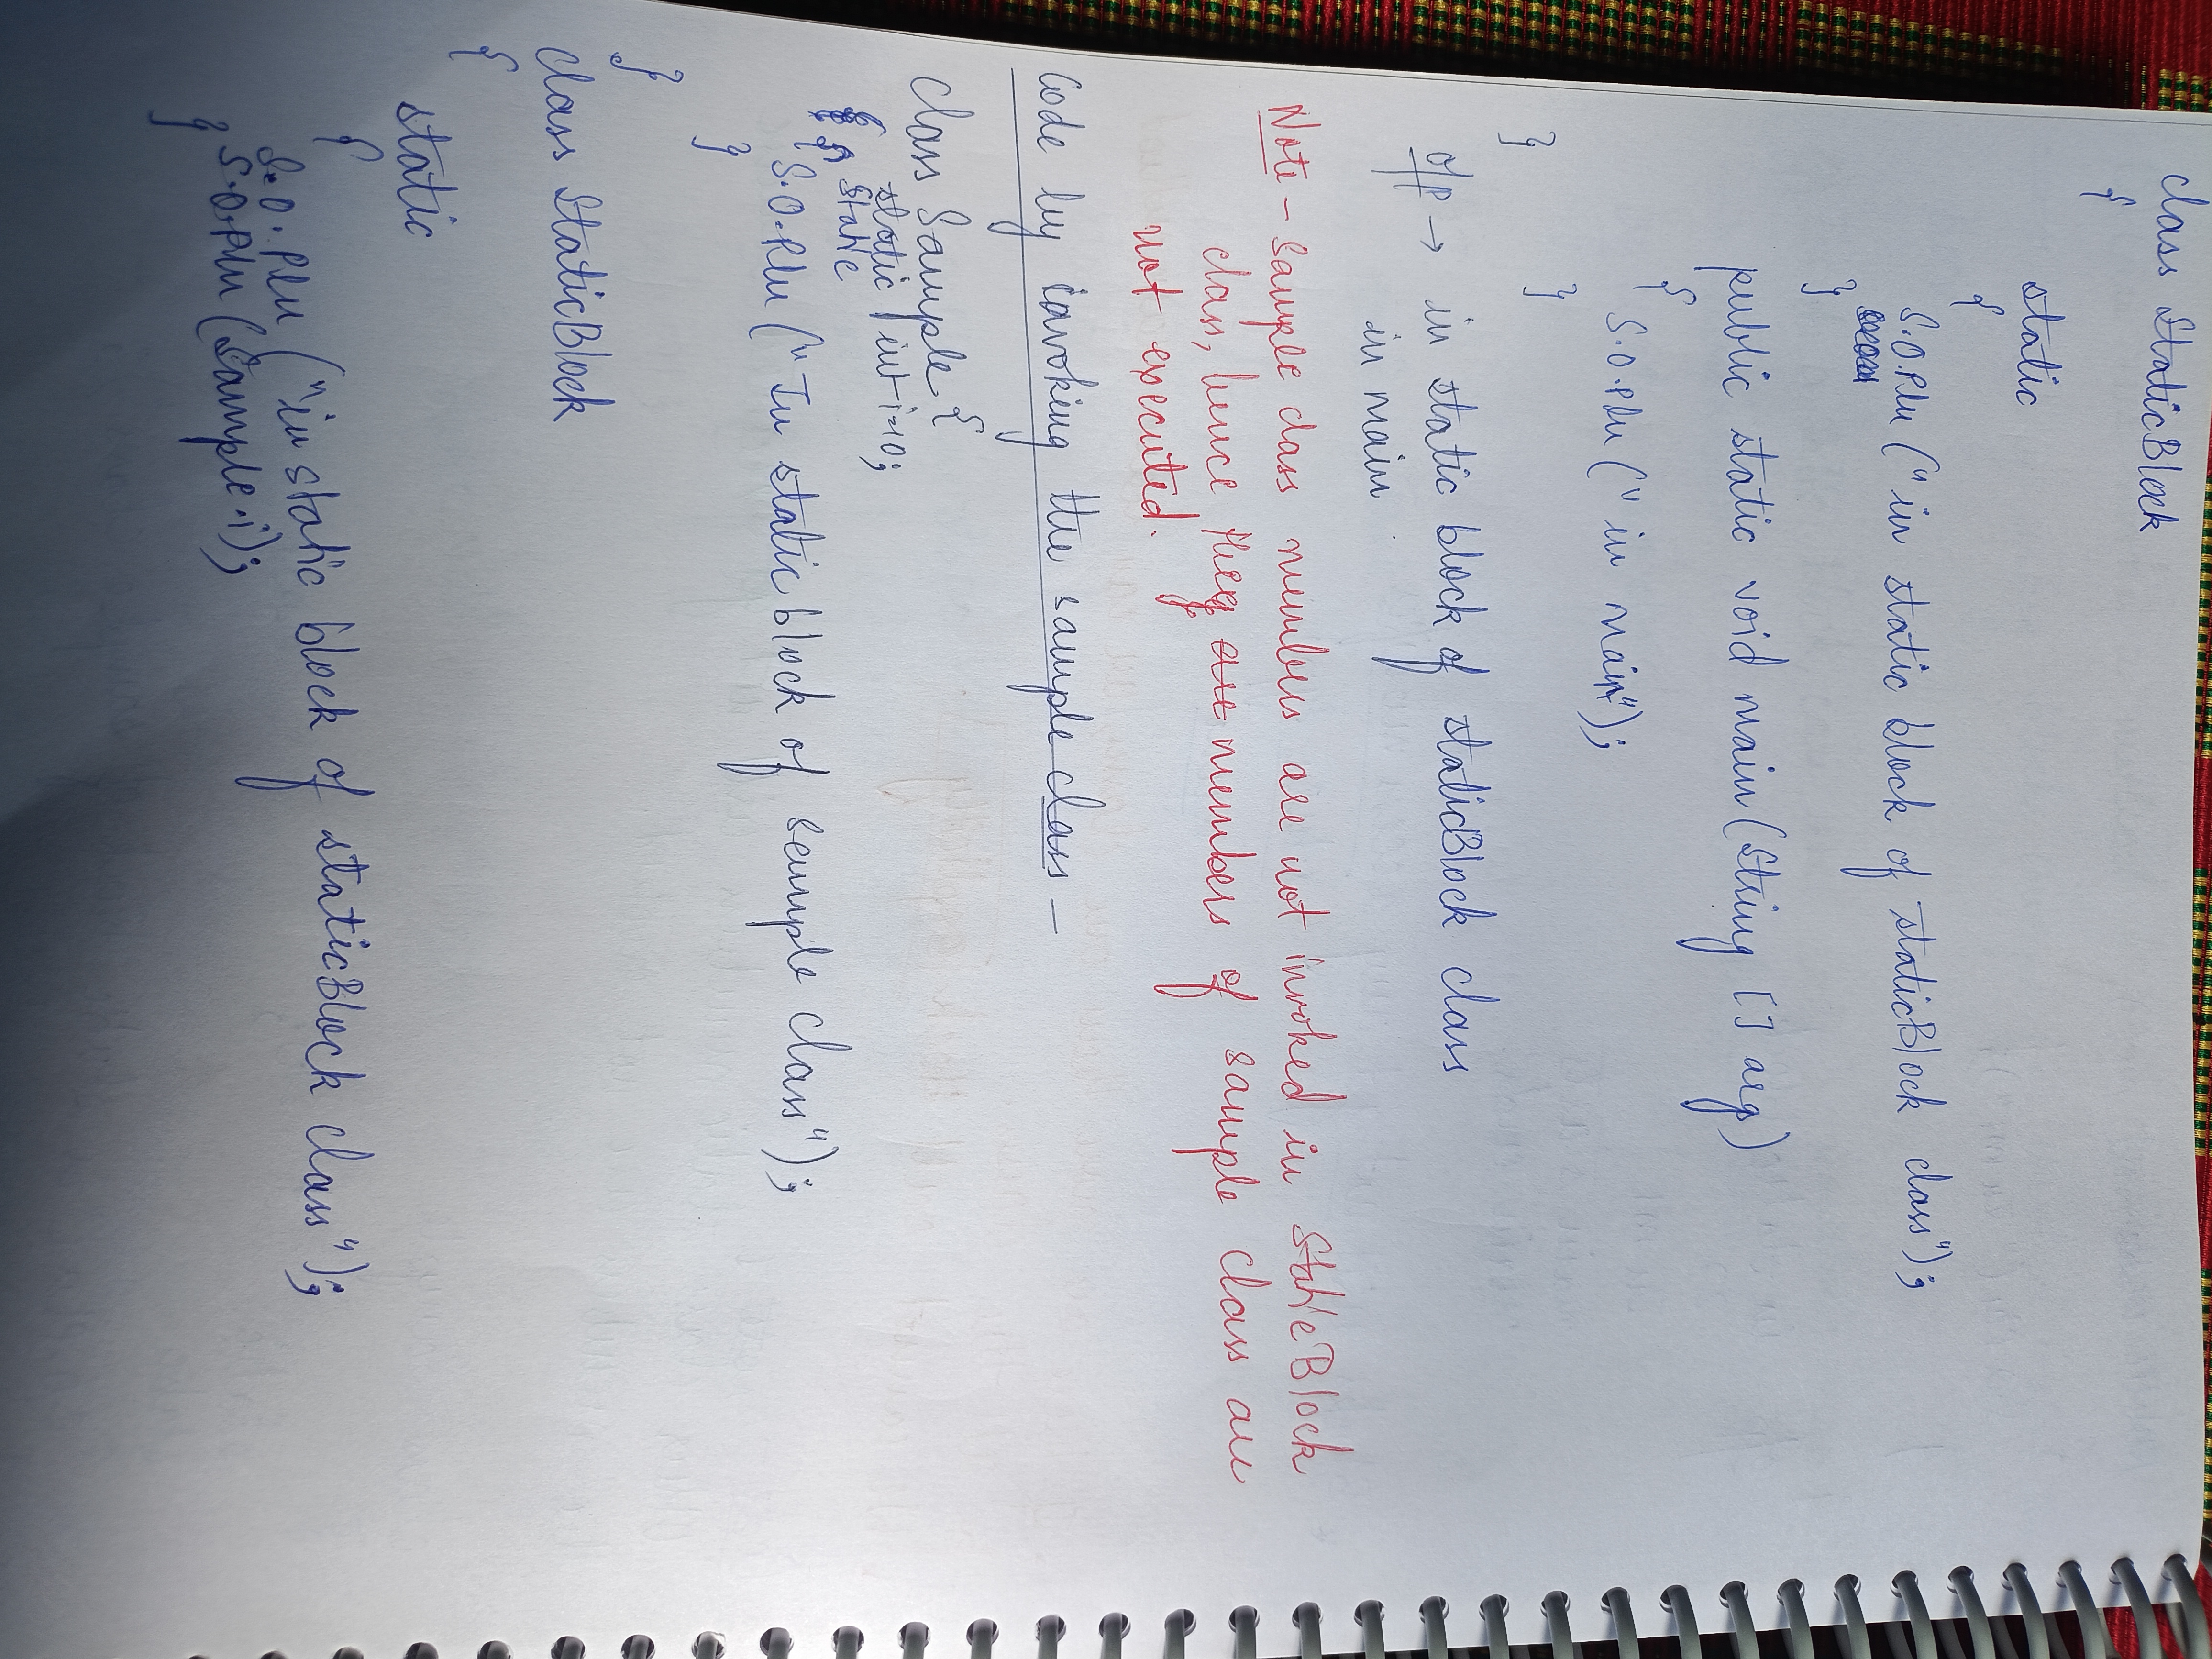 class StaticBlock
{
static
{
S.O.Pln (" in static block of staticBlock class");
}
public static void main (String [] arg)
{
S.O.Pln (" in main");
}
}
O/P → in static block of staticBlock class
in main
Note - Sample class members are not invoked in StaticBlock
class, hence they are members of sample class are
not executed.
Code by invoking the sample class -
Class Sample {
static int i=10;
{ static
S.O.Pln (" In static block of sample class");
}
}
Class StaticBlock
{
static
{
S.O.Pln ("in static block of staticBlock class");
S.O.Pln (Sample.i);
}